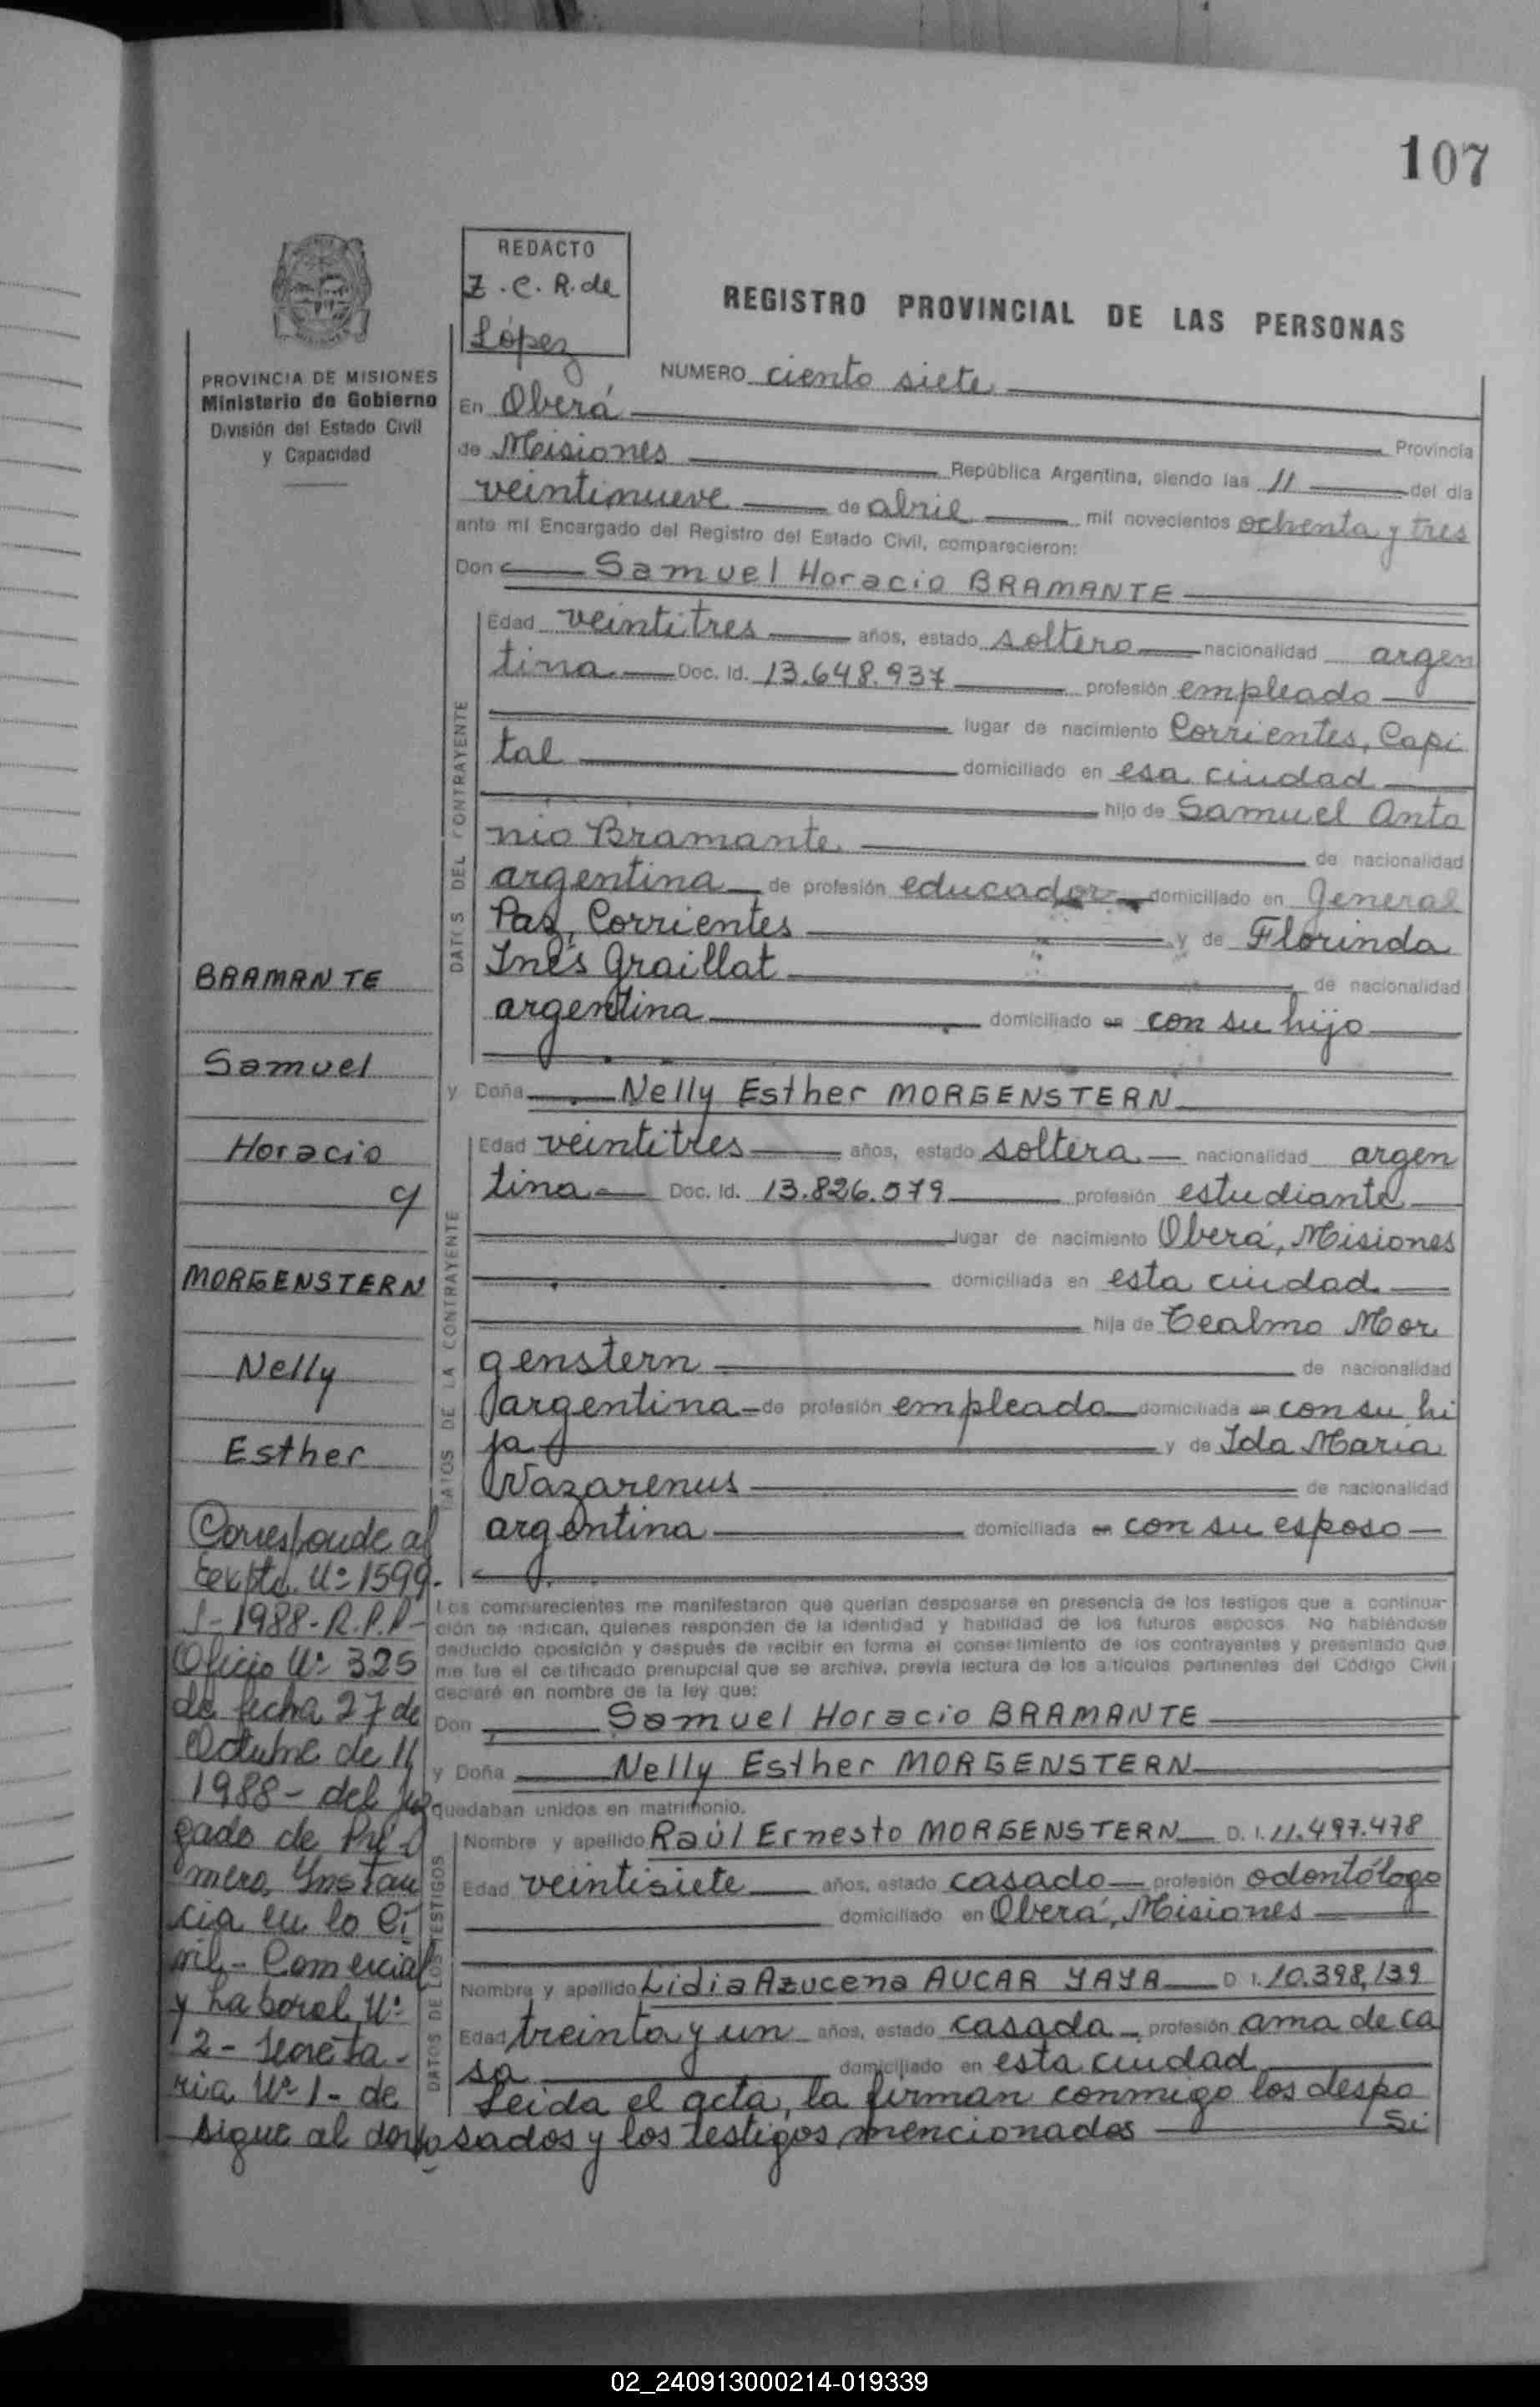 107
REDACTO
Z. C. R. de
López
REGISTRO PROVINCIAL DE LAS PERSONAS
PROVINCIA DE MISIONES
Ministerio de Gobierno
División del Estado Civil
y Capacidad
NUMERO ciento siete
En Oberá Provincia
de Misiones República Argentina, siendo las 11 del día
veintinueve de abril mil novecientos ochenta y tres
ante mi Encargado del Registro del Estado Civil, comparecieron:
Don Samuel Horacio BRAMANTE
DATOS DEL CONTRAYENTE
Edad veintitres años, estado soltero nacionalidad argen
tina Doc. Id. 13.648.937 profesión empleado
lugar de nacimiento Corrientes, Capi
tal domiciliado en esa ciudad
hijo de Samuel Anto
nio Bramante de nacionalidad
argentina de profesión educador domiciliado en General
Paz, Corrientes y de Florinda
Inés Graillat de nacionalidad
argentina domiciliado en con su hijo
y Doña Nelly Esther MORGENSTERN
DATOS DE LA CONTRAYENTE
Edad veintitres años, estado soltera nacionalidad argen
tina Doc. Id. 13.826.579 profesión estudiante
lugar de nacimiento Oberá, Misiones
domiciliada en esta ciudad
hija de Tealmo Mor
genstern de nacionalidad
argentina de profesión empleado domiciliada en con su hi
ja y de Ida Maria
Wazarenus de nacionalidad
argentina domiciliada en con su esposo
Los comparecientes me manifestaron que querían desposarse en presencia de los testigos que a continua-
ción se indican, quienes responden de la identidad y habilidad de los futuros esposos. No habiéndose
deducido oposición y después de recibir en forma el consentimiento de los contrayentes y presentado que
me fue el certificado prenupcial que se archiva, previa lectura de los artículos pertinentes del Código Civil
declaré en nombre de la ley que:
Don Samuel Horacio BRAMANTE
y Doña Nelly Esther MORGENSTERN
quedaban unidos en matrimonio.
DATOS DE LOS TESTIGOS
Nombre y apellido Raúl Ernesto MORGENSTERN D. I. 11.497.478
Edad veintisiete años, estado casado profesión odontólogo
domiciliado en Oberá, Misiones
Nombre y apellido Lidia Azucena AUCAR YAYA D I. 10.398,139
Edad treinta y un años, estado casada profesión ama de ca
sa domiciliado en esta ciudad
Leida el acta, la firman conmigo los despo
sados y los testigos mencionados Si
BRAMANTE
Samuel
Horacio
c/
MORGENSTERN
Nelly
Esther
Corresponde al
Expte. Nº 1599-
1988-R.P.P-
Oficio Nº 325
de fecha 27 de
Octubre de
1988- del Juz
gado de Pri-
mera Instan
cia en lo Ci
vil- Comercial
y Laboral Nº
2- Secreta-
ria Nº 1- de
sigue al dorso
02_240913000214-019339